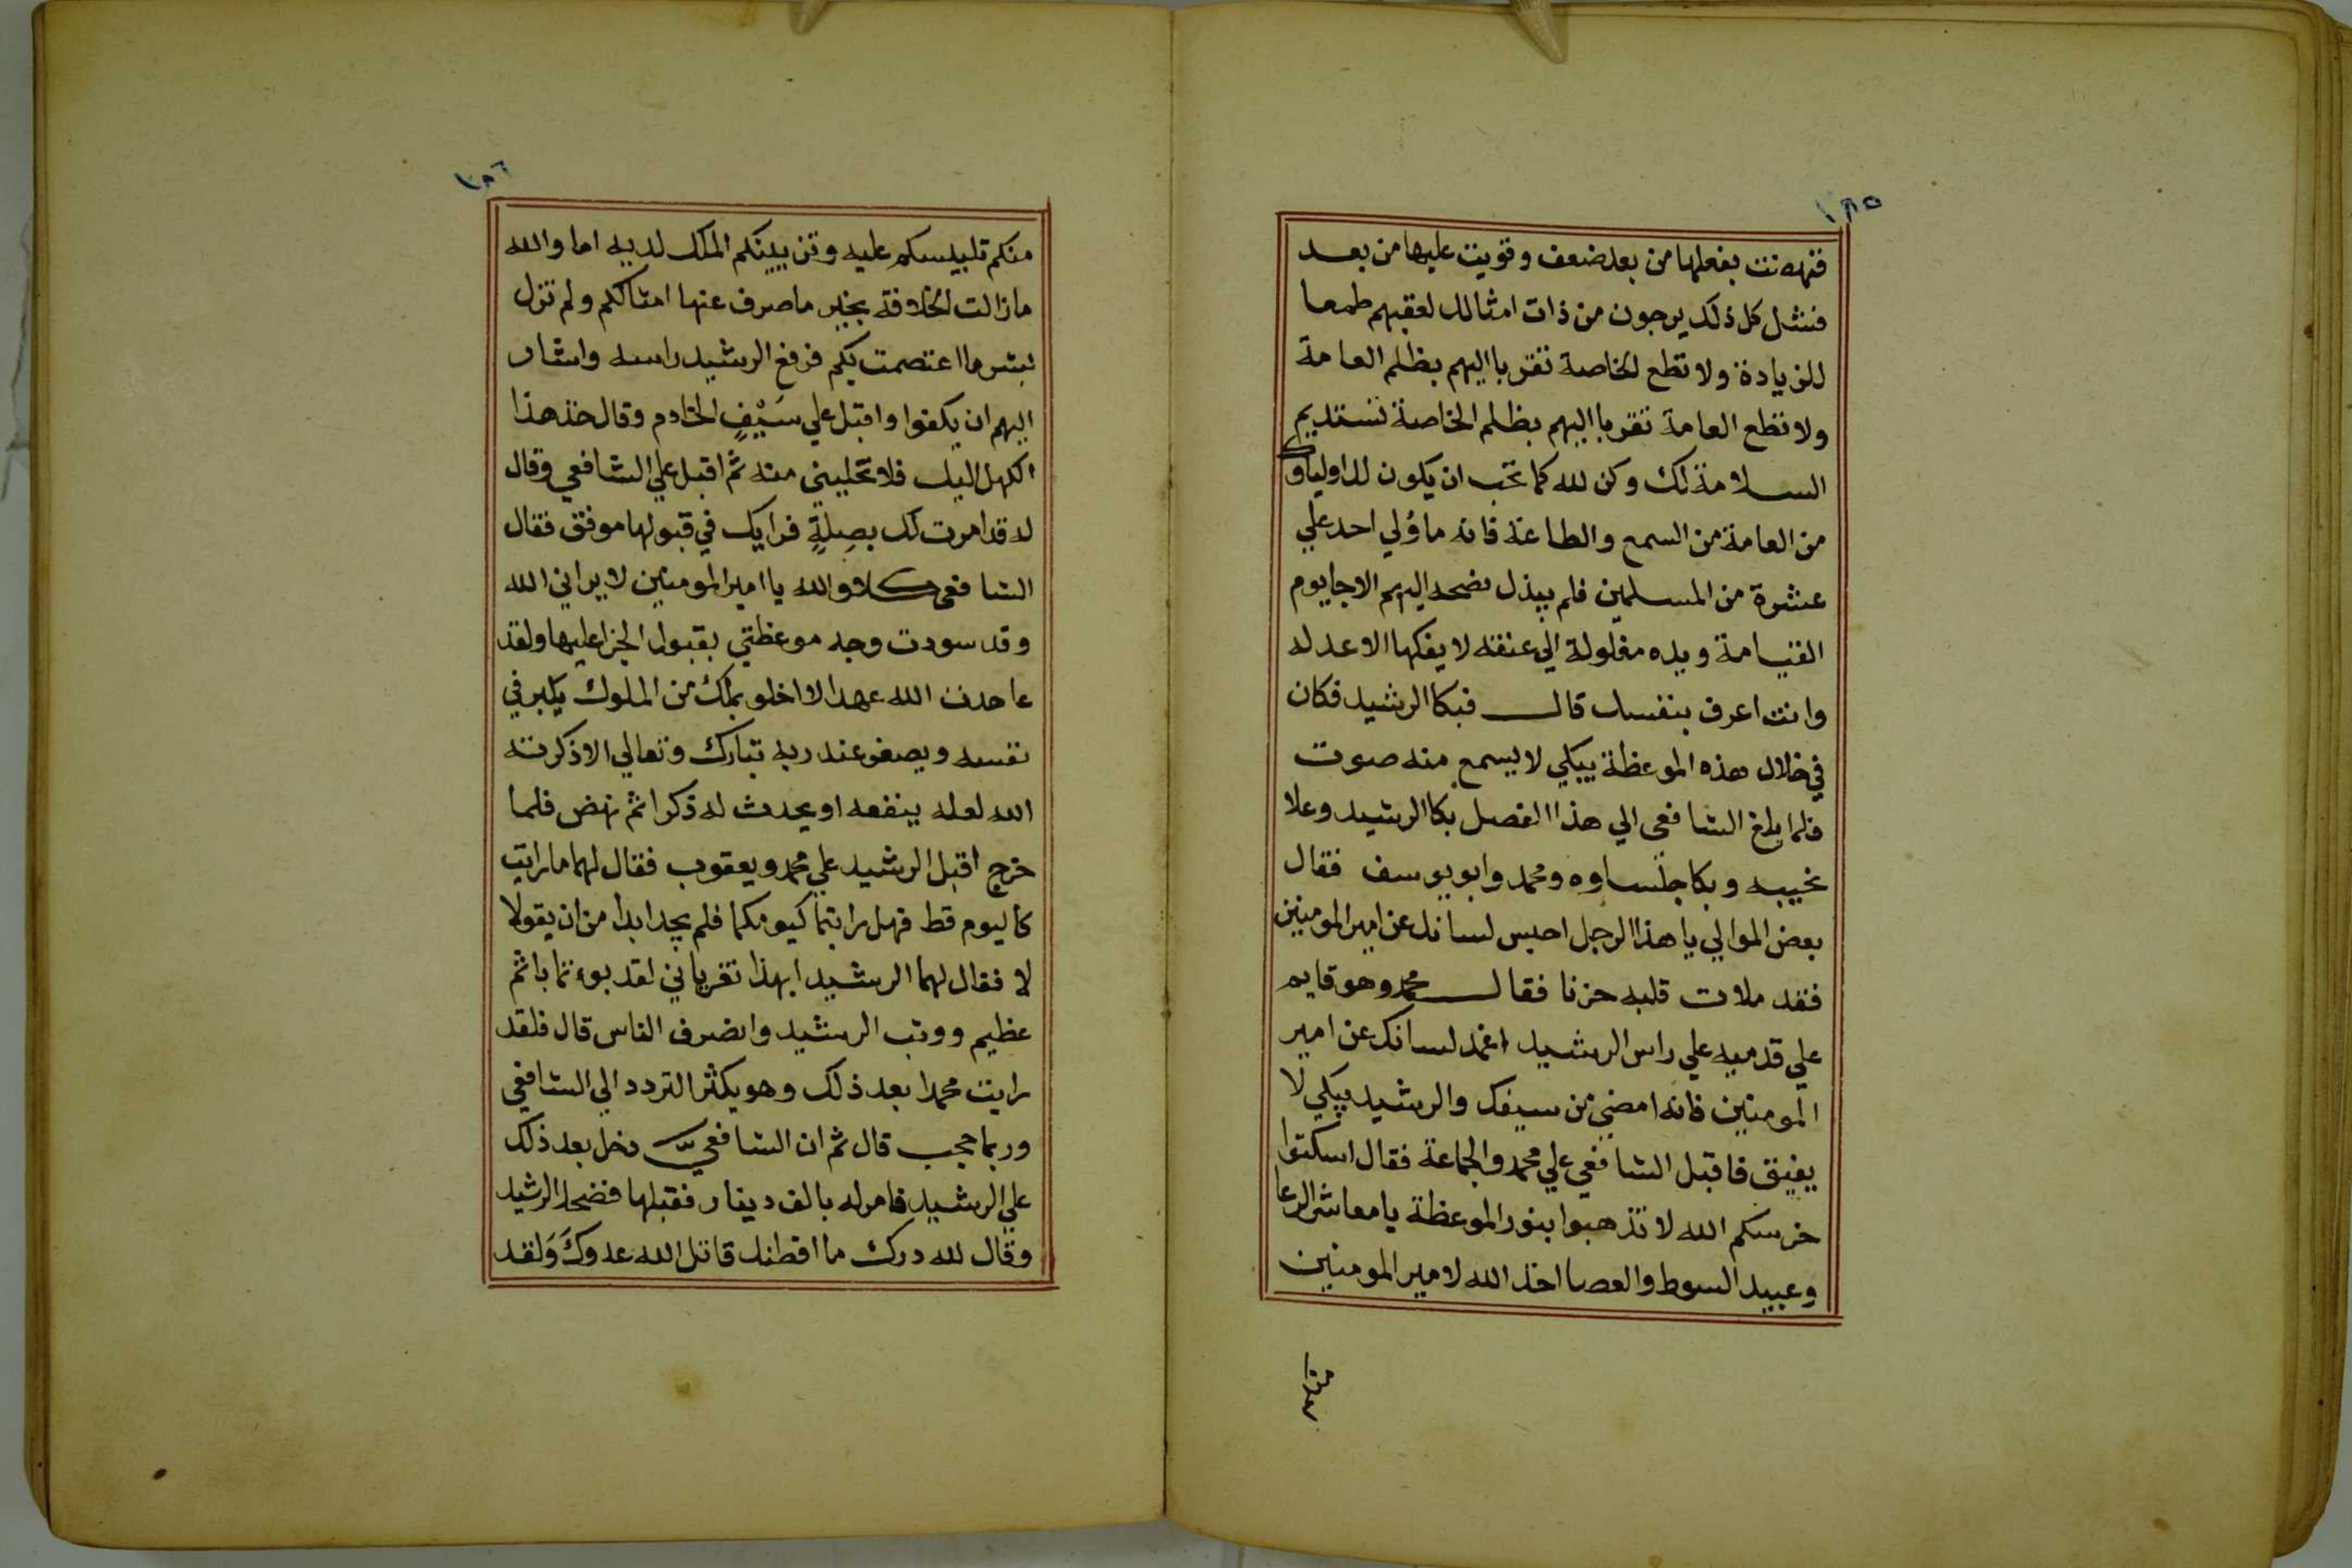 ١٨٥
فنهضت بفعلها من بعد ضعف وقويت عليها من بعد
فشل كل ذلك يرجون من ذات امثالك لعقبهم طمعا
للزيادة ولا تطع الخاصة تقربا اليهم بظلم العامة
ولا تطع العامة تقربا اليهم بظلم الخاصة تستديم
السلامة لك وكن لله كما تحب ان يكون لك اولياوك
من العامة من السمع والطاعة فانه ما وُلي احد علي
عشرة من المسلمين فلم يبذل نصحه اليهم الا جا يوم
القيامة ويده مغلولة الي عنقه لا يفكها الا عدله
وانت اعرف بنفسك قال فبكا الرشيد فكان
في خلال هذه الموعظة يبكي لا يسمع منه صوت
فلما بلغ الشافعي الي هذا الفصل بكا الرشيد وعلا
نحيبه وبكا جلساوه ومحمد وابو يوسف فقال
بعض الموالي يا هذا الرجل احبس لسانك عن امير المومنين
فقد ملات قلبه حزنا فقال محمد وهو قايم
علي قدميه علي راس الرشيد اغمد لسانك عن امير
المومنين فانه امضي من سيفك والرشيد يبكي لا
يفيق فاقبل الشافعي علي محمد والجماعة فقال اسكتوا
خرسكم الله لا تذهبوا بنور الموعظة يا معاشر الرعا
وعبيد السوط والعصا اخذ الله لامير المومنين
منكم
١٨٦
منكم تلبيسكم عليه وتزيينكم الملك لديه اما والله
ما زالت الخلافة بخير ما صرف عنها امثالكم ولم تزل
بشر ما اعتصمت بكم فرفع الرشيد راسه واشار
اليهم ان يكفوا واقبل علي سَيْفٍ الخادم وقال خذ هذا
الكهل اليك فلا تخليني منه ثم اقبل علي الشافعي وقال
له قد امرت لك بصِلةٍ فرايك في قبولها موفق فقال
الشافعي كلا والله يا امير المومنين لا يراني الله
وقد سودت وجه موعظتي بقبول الجزا عليها ولقد
عاهدت الله عهدا لا اخلو بملك من الملوك يكبر في
نفسه ويصغر عند ربه تبارك وتعالي الا ذكرته
الله لعله ينفعه او يحدث له ذكرا ثم نهض فلما
خرج اقبل الرشيد علي محمد ويعقوب فقال لهما ما رايت
كاليوم قط فهل رايتما كيومكما فلم يجدا بدا من ان يقولا
لا فقال لهما الرشيد ابهذا تغرياني لقد بوءتما باثم
عظيم ووثب الرشيد وانصرف الناس قال فلقد
رايت محمدا بعد ذلك وهو يكثر التردد الي الشافعي
وربما حجب قال ثم ان الشافعي دخل بعد ذلك
علي الرشيد فامر له بالف دينار فقبلها فضحك الرشيد
وقال لله درك ما افطنك قاتل الله عدوكَ وَلقد